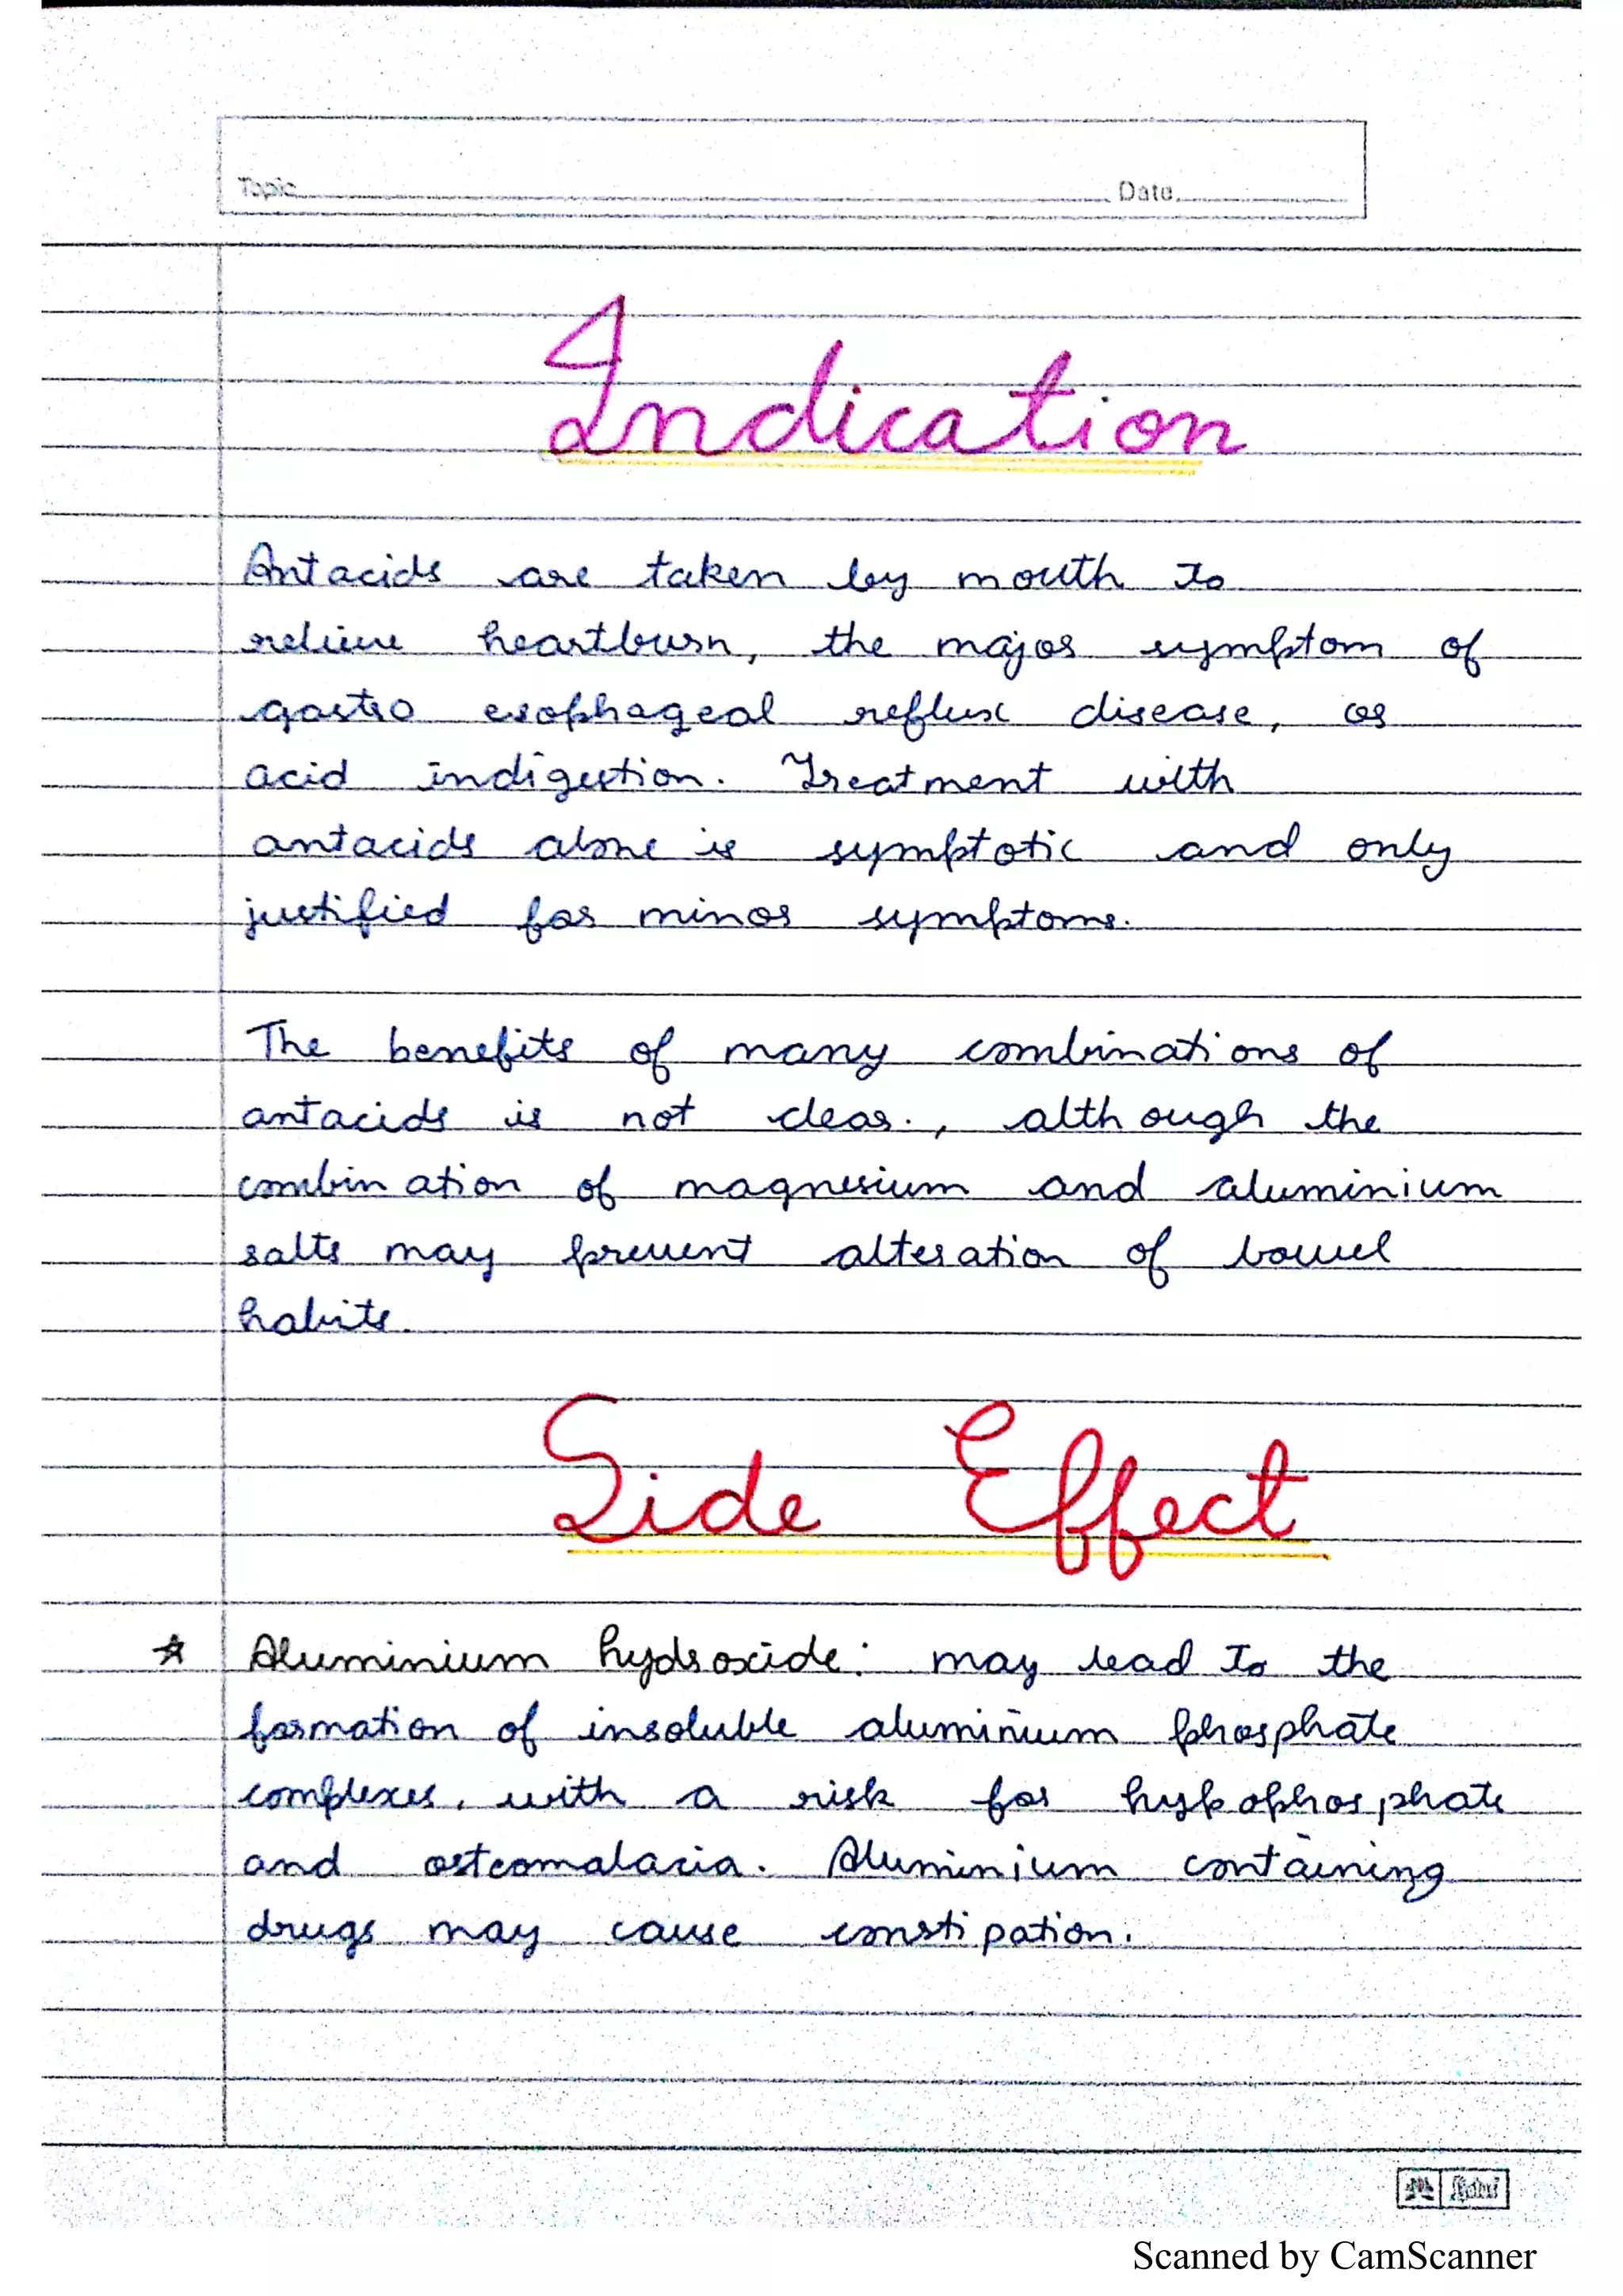 Topic Date
Indication
Antacids are taken by mouth to
relieve heartburn, the major symptom of
gastro esophageal reflux disease, or
acid indigestion. Treatment with
antacids alone is symptotic and only
justified for minor symptoms.
The benefits of many combinations of
antacids is not clear., although the
combination of magnesium and aluminium
salts may prevent alteration of bowel
habits.
Side Effect
* Aluminium hydroxide: may lead to the
formation of insoluble aluminium phosphate
complexes, with a risk for hypophosphate
and osteomalacia. Aluminium containing
drugs may cause constipation.
Scanned by CamScanner